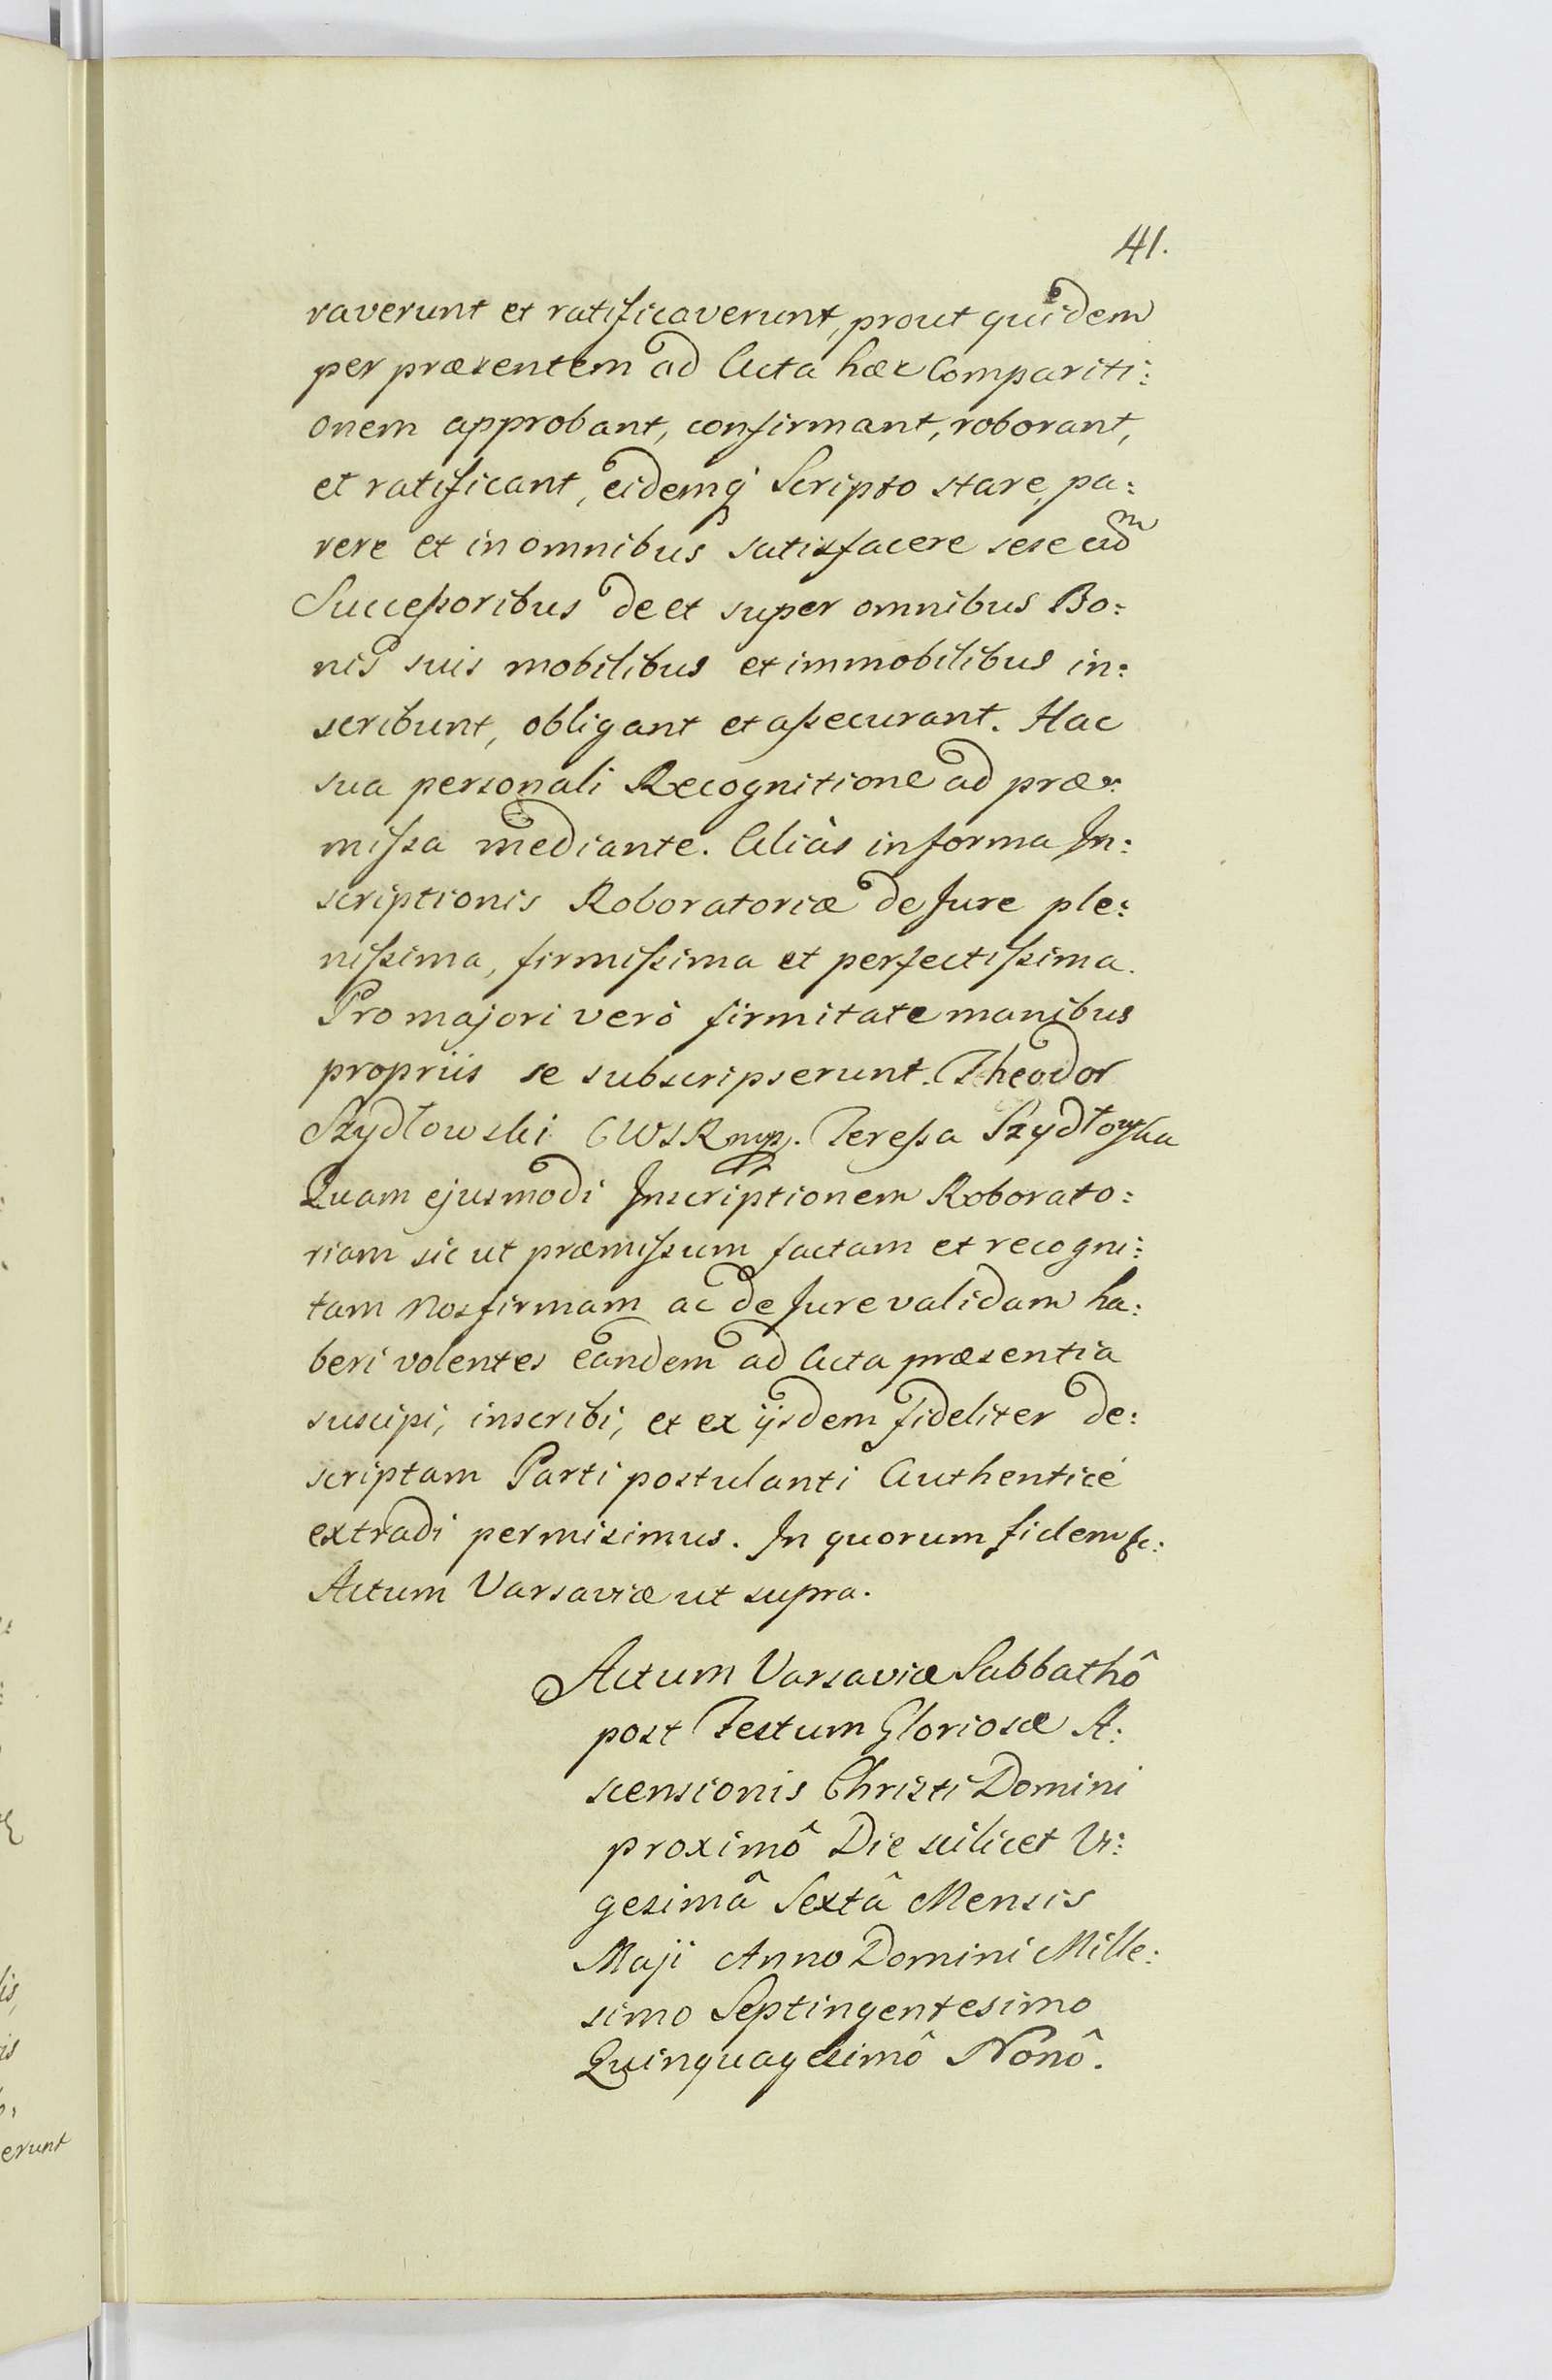 41.
raverunt et ratificaverunt, prout quidem
per præsentem ad Acta hæc Compariti:
onem approbant, confirmant, roborant,
et ratificant, eidemq́ Scripto stare, pa:
rere et in omnibus satisfacere sese cũm
Succeßoribus de et super omnibus Bo:
nis suis mobilibus et immobilibus in:
scribunt, obligant et aßecurant. Hac
sua personali Recognitione ad præ:
mißa mediante. Aliàs in forma In:
scriptionis Roboratoriæ de Jure ple:
nißima, firmißima et perfectißima.
Pro majori verò firmitate manibus
propriis se subscripserunt. Theodor
Szydłowski CWSR mp. Tereßa Szydłowska
Quam ejusmodi Inscriptionem Roborato:
riam sic ut præmißum factam et recogni:
tam Nos firmam ac de Jure validam ha:
beri volentes eandem ad Acta præsentia
suscipi, inscribi, et ex ijsdem fideliter de:
scriptam Parti postulanti Authenticé
extradi permisimus. In quorum fidem &c:
Actum Varsaviæ ut supra.
Actum Varsaviæ Sabbathô
post Festum Gloriosæ A:
scensionis Christi Domini
proximô Die scilicet Vi:
gesimâ Sextâ Mensis
Maji Anno Domini Mille:
simo Septingentesimo
Quinquagesimô Nonô.
erunt